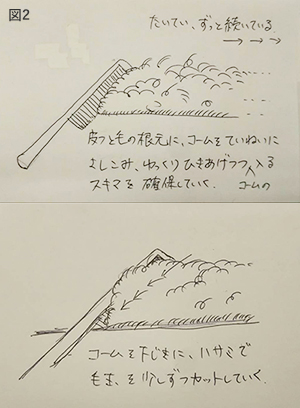 図2
たいてい、ずっと続いている
→ → →
皮フと毛の根元に、コームをていねいに
さしこみ、ゆっくりひきあげつつ入る
スキマを確保していく. コームの
コームを下じきに、ハサミで
毛を、を少しずつカットしていく.